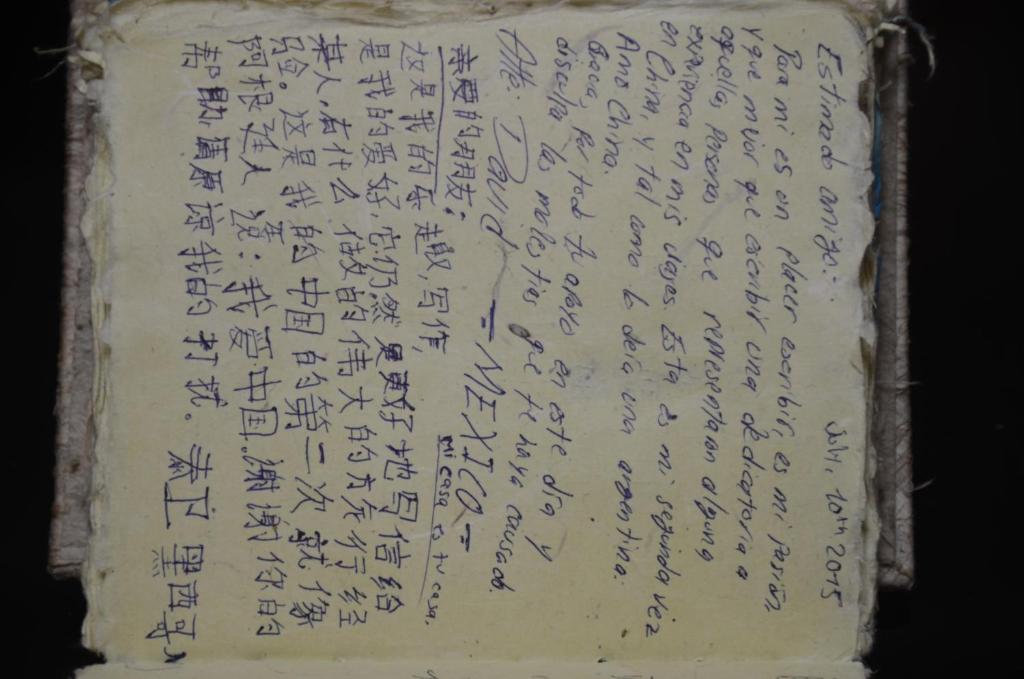 July, 10th 2015
Estimado amigo:
Para mi es un placer escribir, es mi pasión,
y que mejor que escribir una dedicatoria a
aquella personas que representaron alguna
experiencia en mis viajes. Esta es mi segunda vez
en China, y tal como lo decía una argentina:
Amo China.
Gracias por tod tu apoyo en este día y
disculpa las molestias que te haya causado.
Atte. David = MEXICO =
mi casa es tu casa.
亲爱的朋友:
这是我的乐趣,写作,
是我的爱好,它仍然是更好地写信给
某人,有什么做的伟大的旅行经
验。这是我的中国的第二次就像
阿根廷人 语:我爱中国。谢谢你的
帮助原谅我的打扰。 墨西哥人